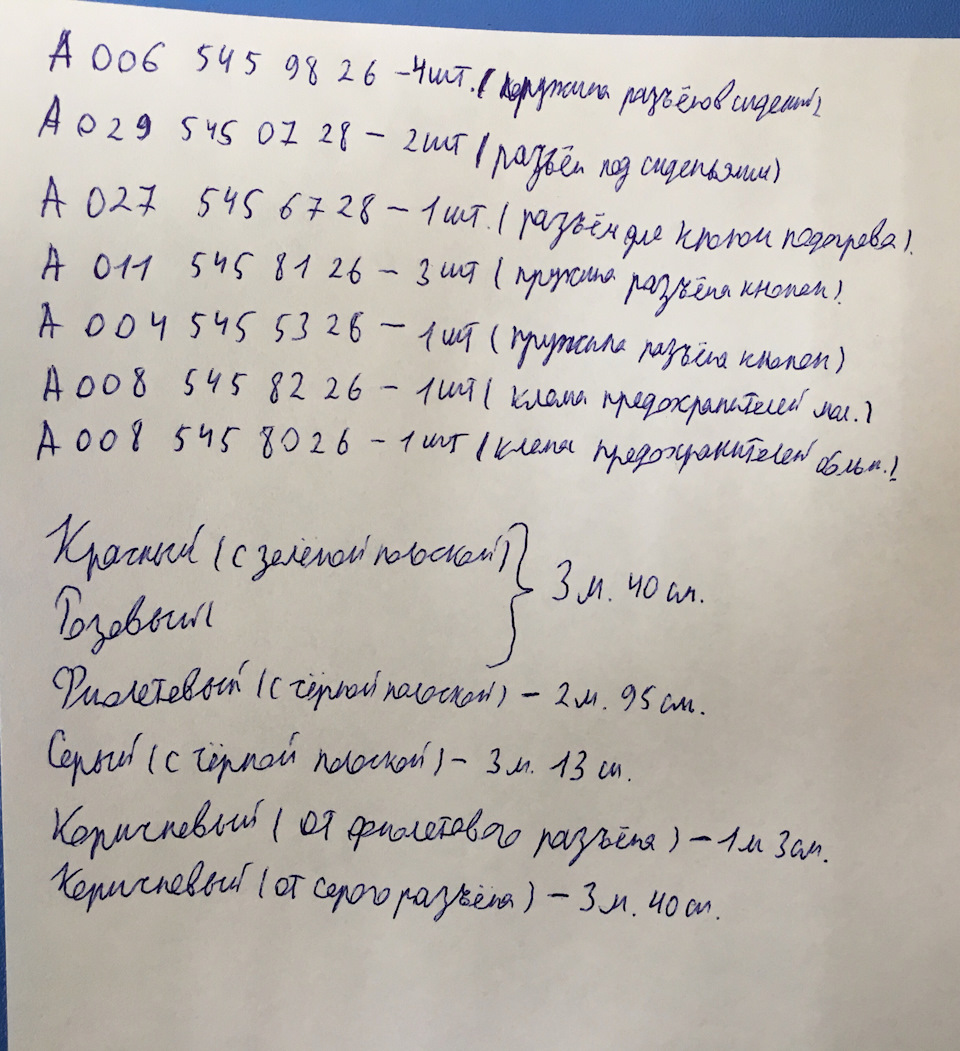 А 006 545 98 26 – 4шт. (пружина разъёмов сидений)
А 029 545 07 28 – 2шт (разъём под сиденьями)
А 027 545 67 28 – 1шт. (разъём для кнопок подогрева)
А 011 545 81 26 – 3шт (пружина разъёма кнопок)
А 004 545 53 26 – 1шт (пружина разъёма кнопок)
А 008 545 82 26 – 1шт (клема предохранителей мал.)
А 008 545 80 26 – 1шт (клема предохранителей больш.)
Красный (с зелёной полоской)
3 м. 40 см.
Розовый
Фиолетевый (с чёрной полоской) – 2 м. 95 см.
Серый (с чёрной полоской) – 3 м. 13 см.
Коричневый (от фиолетового разъёма) – 1 м 3 см.
Коричневый (от серого разъёма) – 3 м. 40 см.